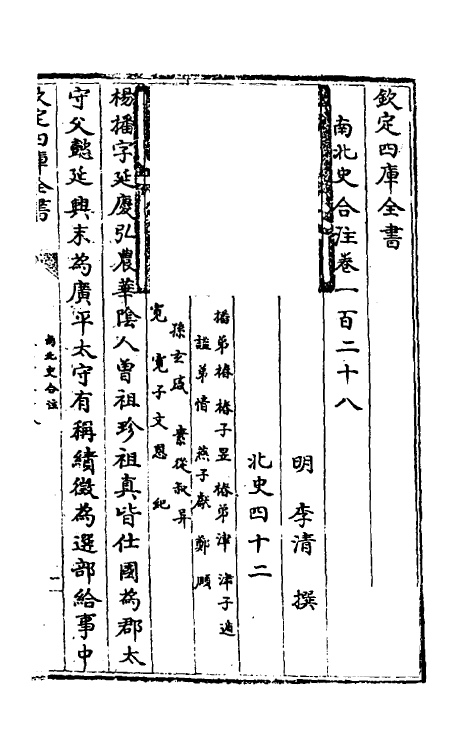 欽定四庫全書
南北史合注卷一百二十八
明 李清 撰
北史四十二
播弟椿 椿子昱 椿弟津 津子遁
謐弟愔 燕子獻 鄭頤
孫玄感 素從叔异
寛 寛子文思 紀
楊播字延慶弘農華陰人曾祖珍祖真皆仕國為郡太
守父懿延興末為廣平太守有稱績徵為選部給事中
欽定四庫全書
南北史合注